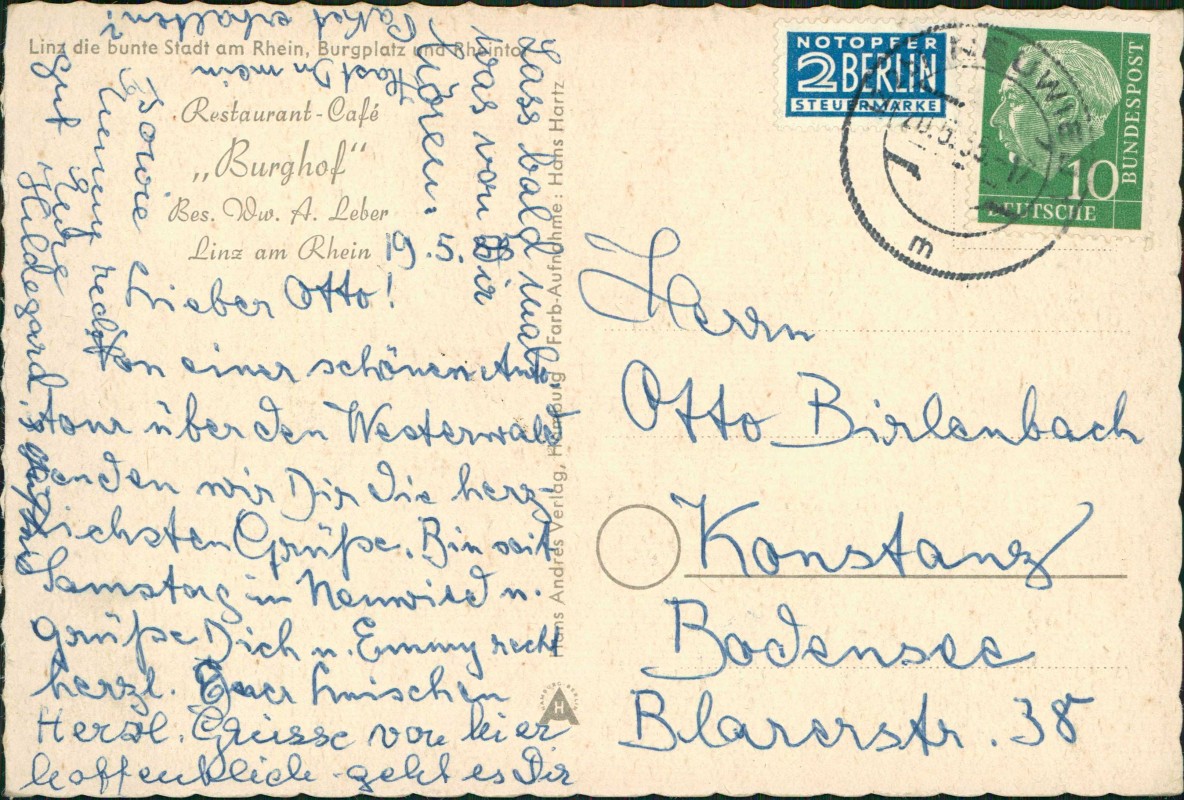 Linz die bunte Stadt am Rhein, Burgplatz und Rheintor
Restaurant-Café
„Burghof“
Bes. Ww. A. Leber
Linz am Rhein
19.5.55
Lieber Otto!
Von einer schönen Auto-
tour über den Westerwald
senden wir Dir die herz-
lichsten Grüße. Bin seit
Samstag in Neuwied u.
grüße Dich u. Emmy recht
herzl. Euer
Herzl. Grüsse von hier
hoffentlich geht es Dir
sowie
Emmy recht
gut Eure
Hildegard
Lass bald mal
was von Dir
hören.
Hast Du mein
Paket erhalten?
Hans Andres Verlag, Hamburg Farb-Aufnahme: Hans Hartz
H
NOTOPFER
2 BERLIN
STEUERMARKE
DEUTSCHE
BUNDESPOST
10
NEUWIED
m
Herrn
Otto Birlenbach
Konstanz
Bodensee
Blarerstr. 38